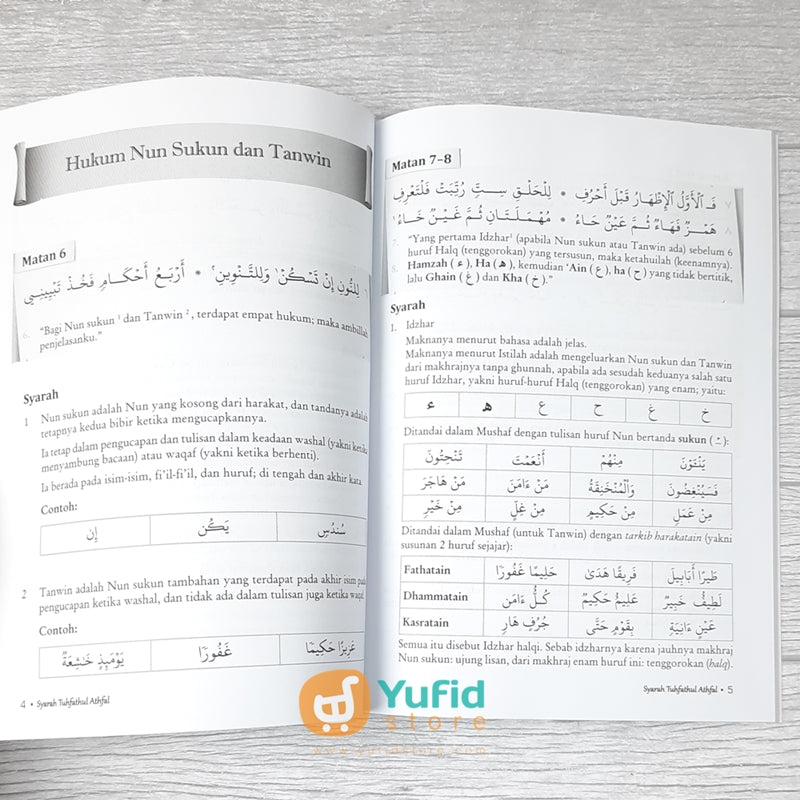 Hukum Nun Sukun dan Tanwin
Matan 6
لِلنُّونِ إِنْ تَسْكُنْ وَلِلتَّنْوِينِ * أَرْبَعُ أَحْكَامٍ فَخُذْ تَبْيِينِي
6. "Bagi Nun sukun ¹ dan Tanwin ², terdapat empat hukum; maka ambillah
penjelasanku."
Syarah
1 Nun sukun adalah Nun yang kosong dari harakat, dan tandanya adalah
tetapnya kedua bibir ketika mengucapkannya.
Ia tetap dalam pengucapan dan tulisan dalam keadaan washal (yakni ketika
menyambung bacaan) atau waqaf (yakni ketika berhenti).
Ia berada pada isim-isim, fi'il-fi'il, dan huruf; di tengah dan akhir kata.
Contoh:
إِن يَكُن سُندُسٍ
2 Tanwin adalah Nun sukun tambahan yang terdapat pada akhir isim pada
pengucapan ketika washal, dan tidak ada dalam tulisan juga ketika waqaf.
Contoh:
يَوْمَئِذٍ خَـٰشِعَةٌ غَفُورًا عَزِيزًا حَكِيمًا
4 • Syarah Tuhfathul Athfal
Matan 7-8
٧ فَـالْأَوَّلُ الْإِظْهَارُ قَبْلَ أَحْرُفِ * لِلْحَلْقِ سِتٌّ رُتِّبَتْ فَلْتَعْرِفِ
٨ هَمْزٌ فَهَاءٌ ثُمَّ عَيْنٌ حَاءُ * مُهْمَلَتَانِ ثُمَّ غَيْنٌ خَاءُ
7. "Yang pertama Idzhar¹ (apabila Nun sukun atau Tanwin ada) sebelum 6
huruf Halq (tenggorokan) yang tersusun, maka ketahuilah (keenamnya).
8. Hamzah (ء), Ha (ﻫ), kemudian 'Ain (ع), ha (ح) yang tidak bertitik,
lalu Ghain (غ) dan Kha (خ)."
Syarah
1. Idzhar
Maknanya menurut bahasa adalah jelas.
Maknanya menurut Istilah adalah mengeluarkan Nun sukun dan Tanwin
dari makhrajnya tanpa ghunnah, apabila ada sesudah keduanya salah satu
huruf Idzhar, yakni huruf-huruf Halq (tenggorokan) yang enam; yaitu:
ء ﻫ ع ح غ خ
Ditandai dalam Mushaf dengan tulisan huruf Nun bertanda sukun ( ـْ ):
تَنْحِتُونَ أَنْعَمْتَ مِنْهُمْ يَنْـَٔوْنَ
مَنْ هَاجَرَ مَنْ ءَامَنَ وَٱلْمُنْخَنِقَةُ فَسَيُنْغِضُونَ
مِنْ خَيْرٍ مِنْ غِلٍّ مِنْ حَكِيمٍ مِنْ عَمَلٍ
Ditandai dalam Mushaf (untuk Tanwin) dengan tarkib harakatain (yakni
susunan 2 huruf sejajar):
Fathatain حَلِيمًا غَفُورًا فَرِيقًا هَدَىٰ طَيْرًا أَبَابِيلَ
Dhammatain كُلٌّ ءَامَنَ عَلِيمٌ حَكِيمٌ لَطِيفٌ خَبِيرٌ
Kasratain جُرُفٍ هَارٍ بِقَوْمٍ حَتَّىٰ عَيْنٍ ءَانِيَةٍ
Semua itu disebut Idzhar halqi. Sebab idzharnya karena jauhnya makhraj
Nun sukun: ujung lisan, dari makhraj enam huruf ini: tenggorokan (halq).
Syarah Tuhfathul Athfal • 5
Yufid
store
www.yufidstore.com